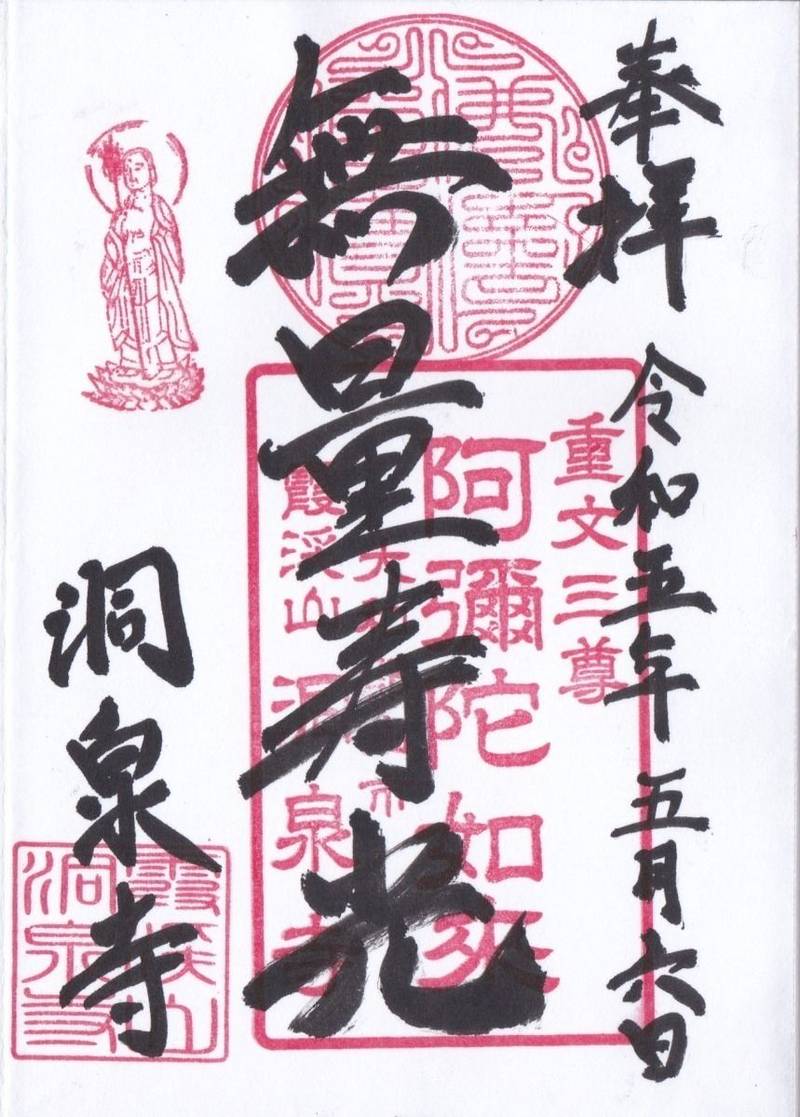 奉拝
令和五年 五月 六日
無量寿光
洞泉寺
重文三尊
阿彌陀如来
霞溪山 洞泉寺